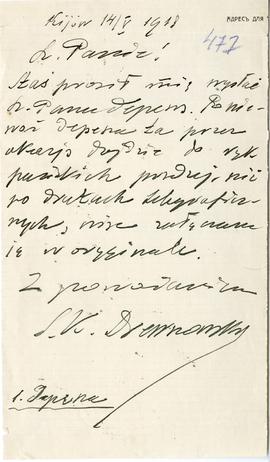 АДРЕСЪ ДЛЯ
Kijów 14/V 1918
477
Sz. Panie!
Staś prosił mię wysłać
Sz. Panu depesz. Ponie-
waż depesza ta przez
okazję dojdzie do rąk
pańskich prędzej, niż
po drutach telegraficz-
nych, więc załączam
ją w oryginale.
Z poważaniem
S. K.
1. Depesza